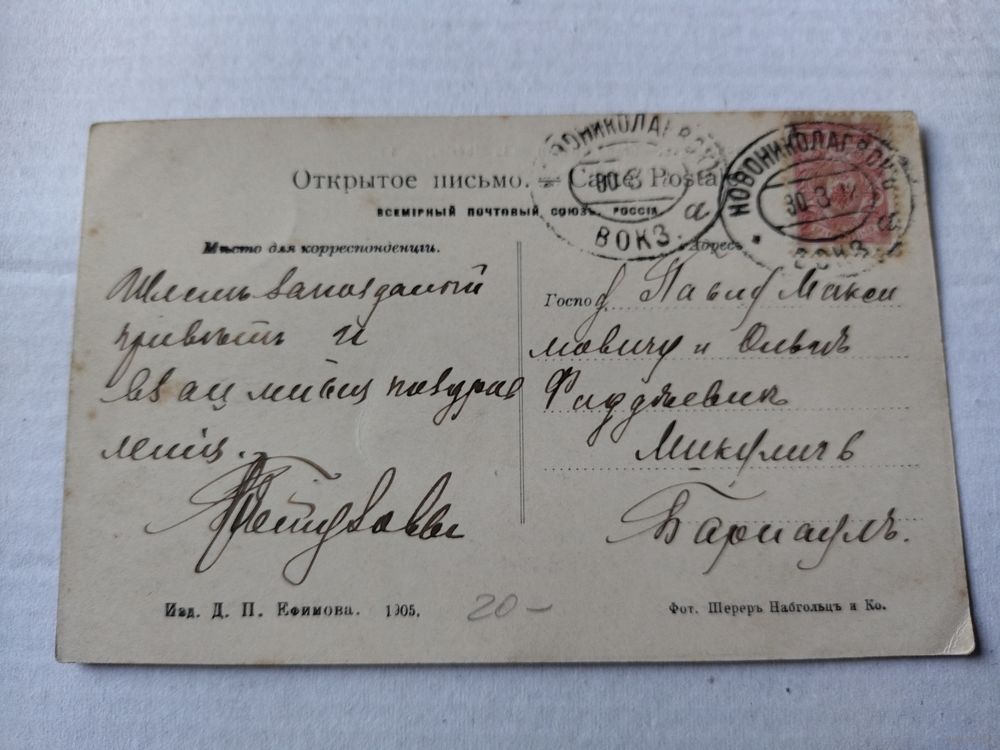 Открытое письмо. — Carte Posta
ВСЕМІРНЫЙ ПОЧТОВЫЙ СОЮЗЪ. РОССІЯ
НОВОНИКОЛАЕВСКЪ
30 8
а
ВОКЗ.
НОВОНИКОЛАЕВСКЪ
30 8
ВОКЗ
Мѣсто для корреспонденціи.
Шлемъ запоздалый
привѣтъ и
взаимныя поздрав
ленія.
Пѣтуховы
Адресъ
Господ. Павлу Макси
мовичу и Ольгѣ
Фаддѣевнѣ
Микуличъ
Барнаулъ.
Изд. Д. П. Ефимова. 1905.
20 –
Фот. Шереръ Набгольцъ и Ко.